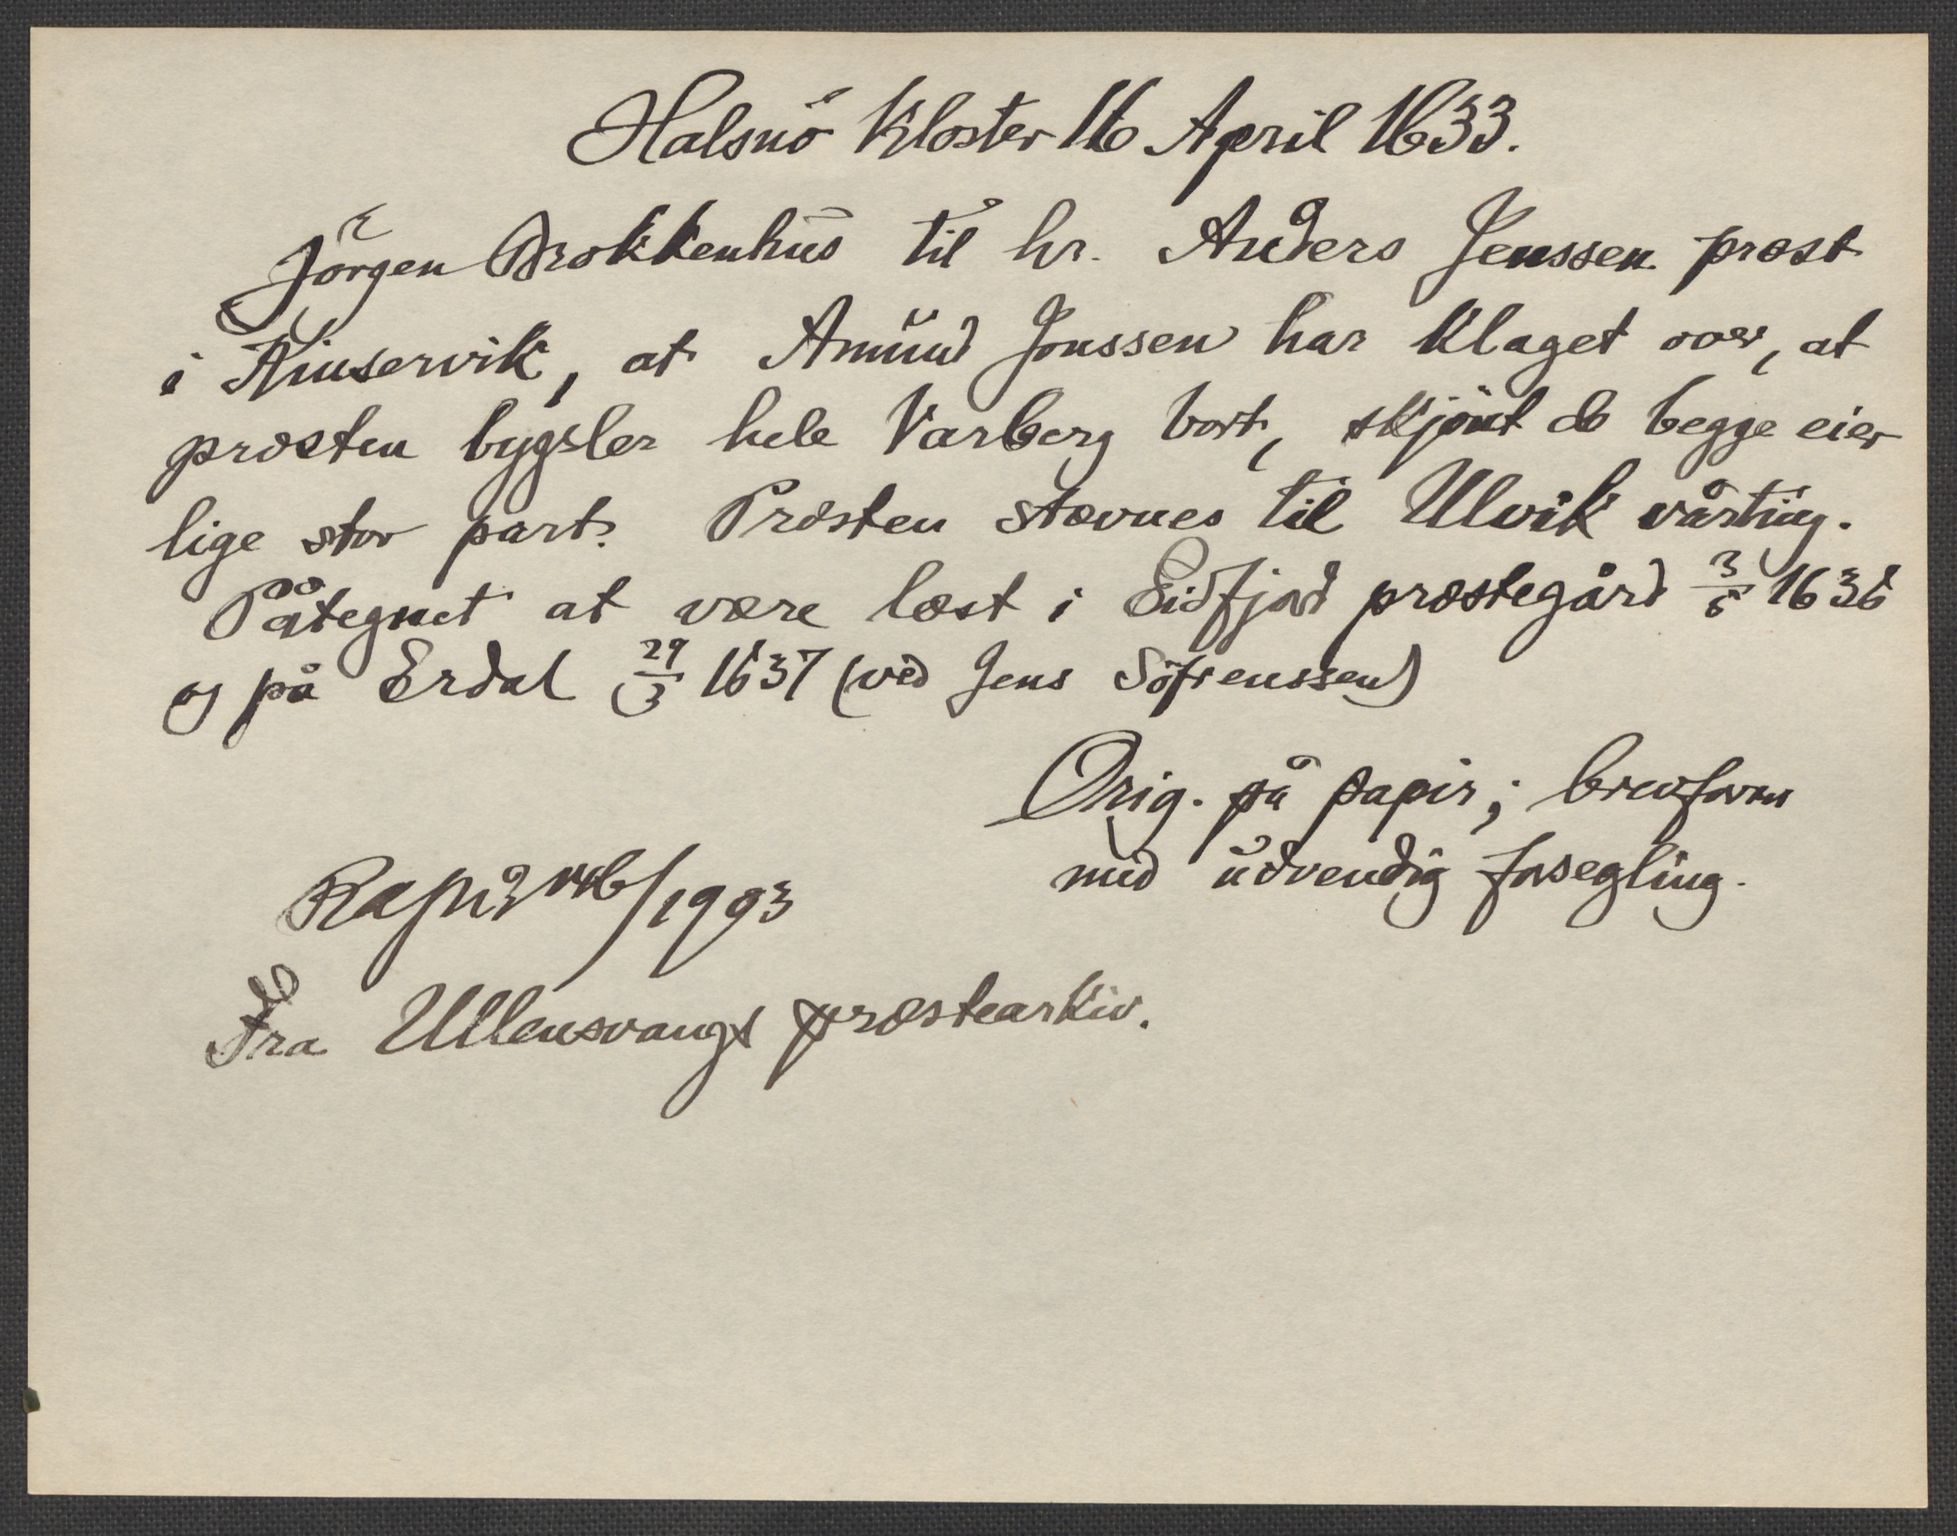 Halsnö Kloster 16 April 1633.
Jörgen Brokkenhus til hr. Anders Jenssen præst
i Kinservik, at Amund Jonssen har klaget over, at
præsten bygsler hele Varberg bort, skjönt de begge eier
lige stor part. Præsten stævnes til Ulvik vårting.
Påtegnet at være læst i Eidfjord præstegård 3/5 1636
og på Erdal 29/3 1637 (ved Jens Söfrenssen)
Orig. på papir; brevform
med udvendig forsegling.
/1993
Fra Ullensvangs præstearkiv.